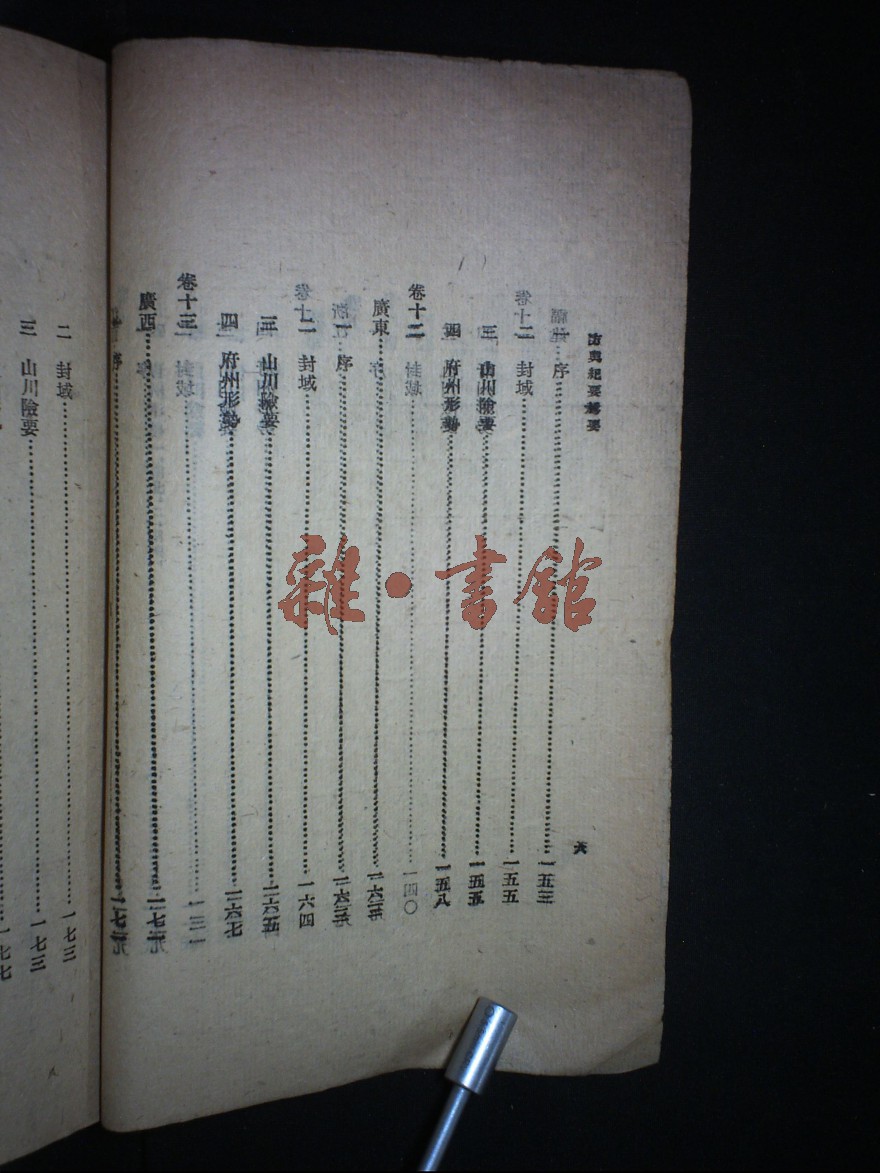 方輿紀要輯要
六
一 序……一五三
二 封域……一五五
三 山川險要……一五五
四 府州形勢……一五八
卷十二
廣東……一六三
一 序……一六三
二 封域……一六四
三 山川險要……一六五
四 府州形勢……一六七
卷十三
廣西……一七一
一 序……一七一
二 封域……一七三
三 山川險要……一七三
一七七
雜·書館